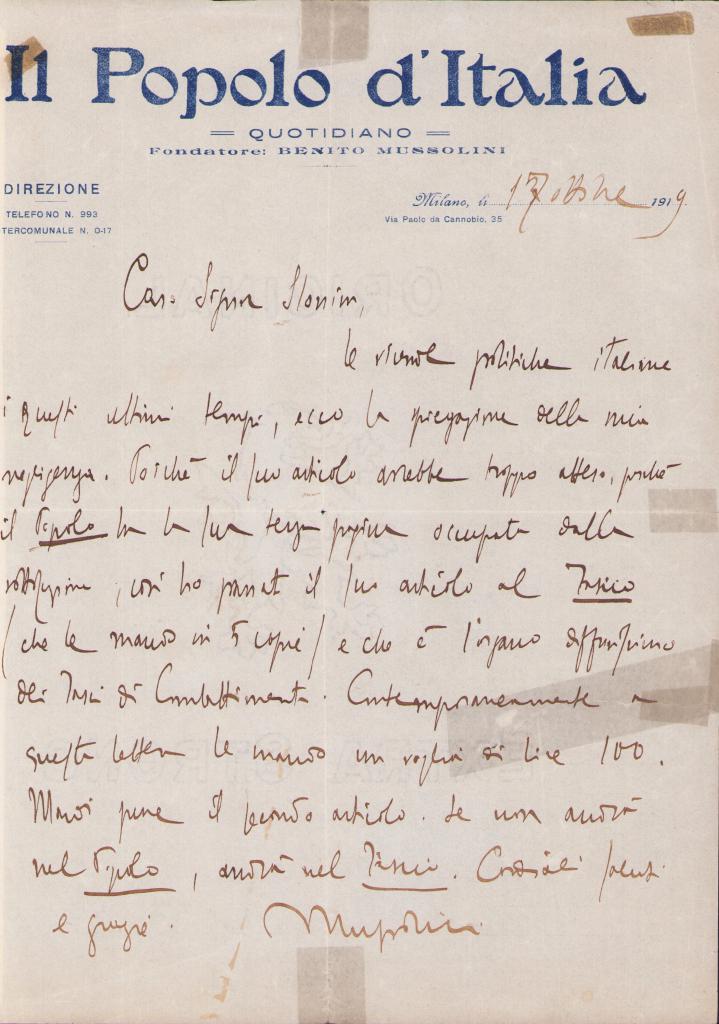 Il Popolo d'Italia
QUOTIDIANO
Fondatore: BENITO MUSSOLINI
DIREZIONE
TELEFONO N. 993
TERCOMUNALE N. 0-17
Milano, li 17 ottobre 1919
Via Paolo da Cannobio, 35
Caro Signor Slonim,
le vicende politiche italiane
i questi ultimi tempi, ecco la spiegazione della mia
negligenza. Poichè il suo articolo avrebbe troppo atteso, poichè
il Popolo ha la sua terza pagina occupata dalla
sottoscrizione, così ho passato il suo articolo al Fascio
(che le mando in 5 copie) e che è l'organo diffusissimo
dei Fasci di Combattimento. Contemporaneamente a
questa lettera le mando un vaglia di lire 100.
Mandi pure il secondo articolo. Se non andrà
nel Popolo, andrà nel Fascio. Cordiali saluti
e grazie. Mussolini
ORIGINAL
EXTRA STRONG